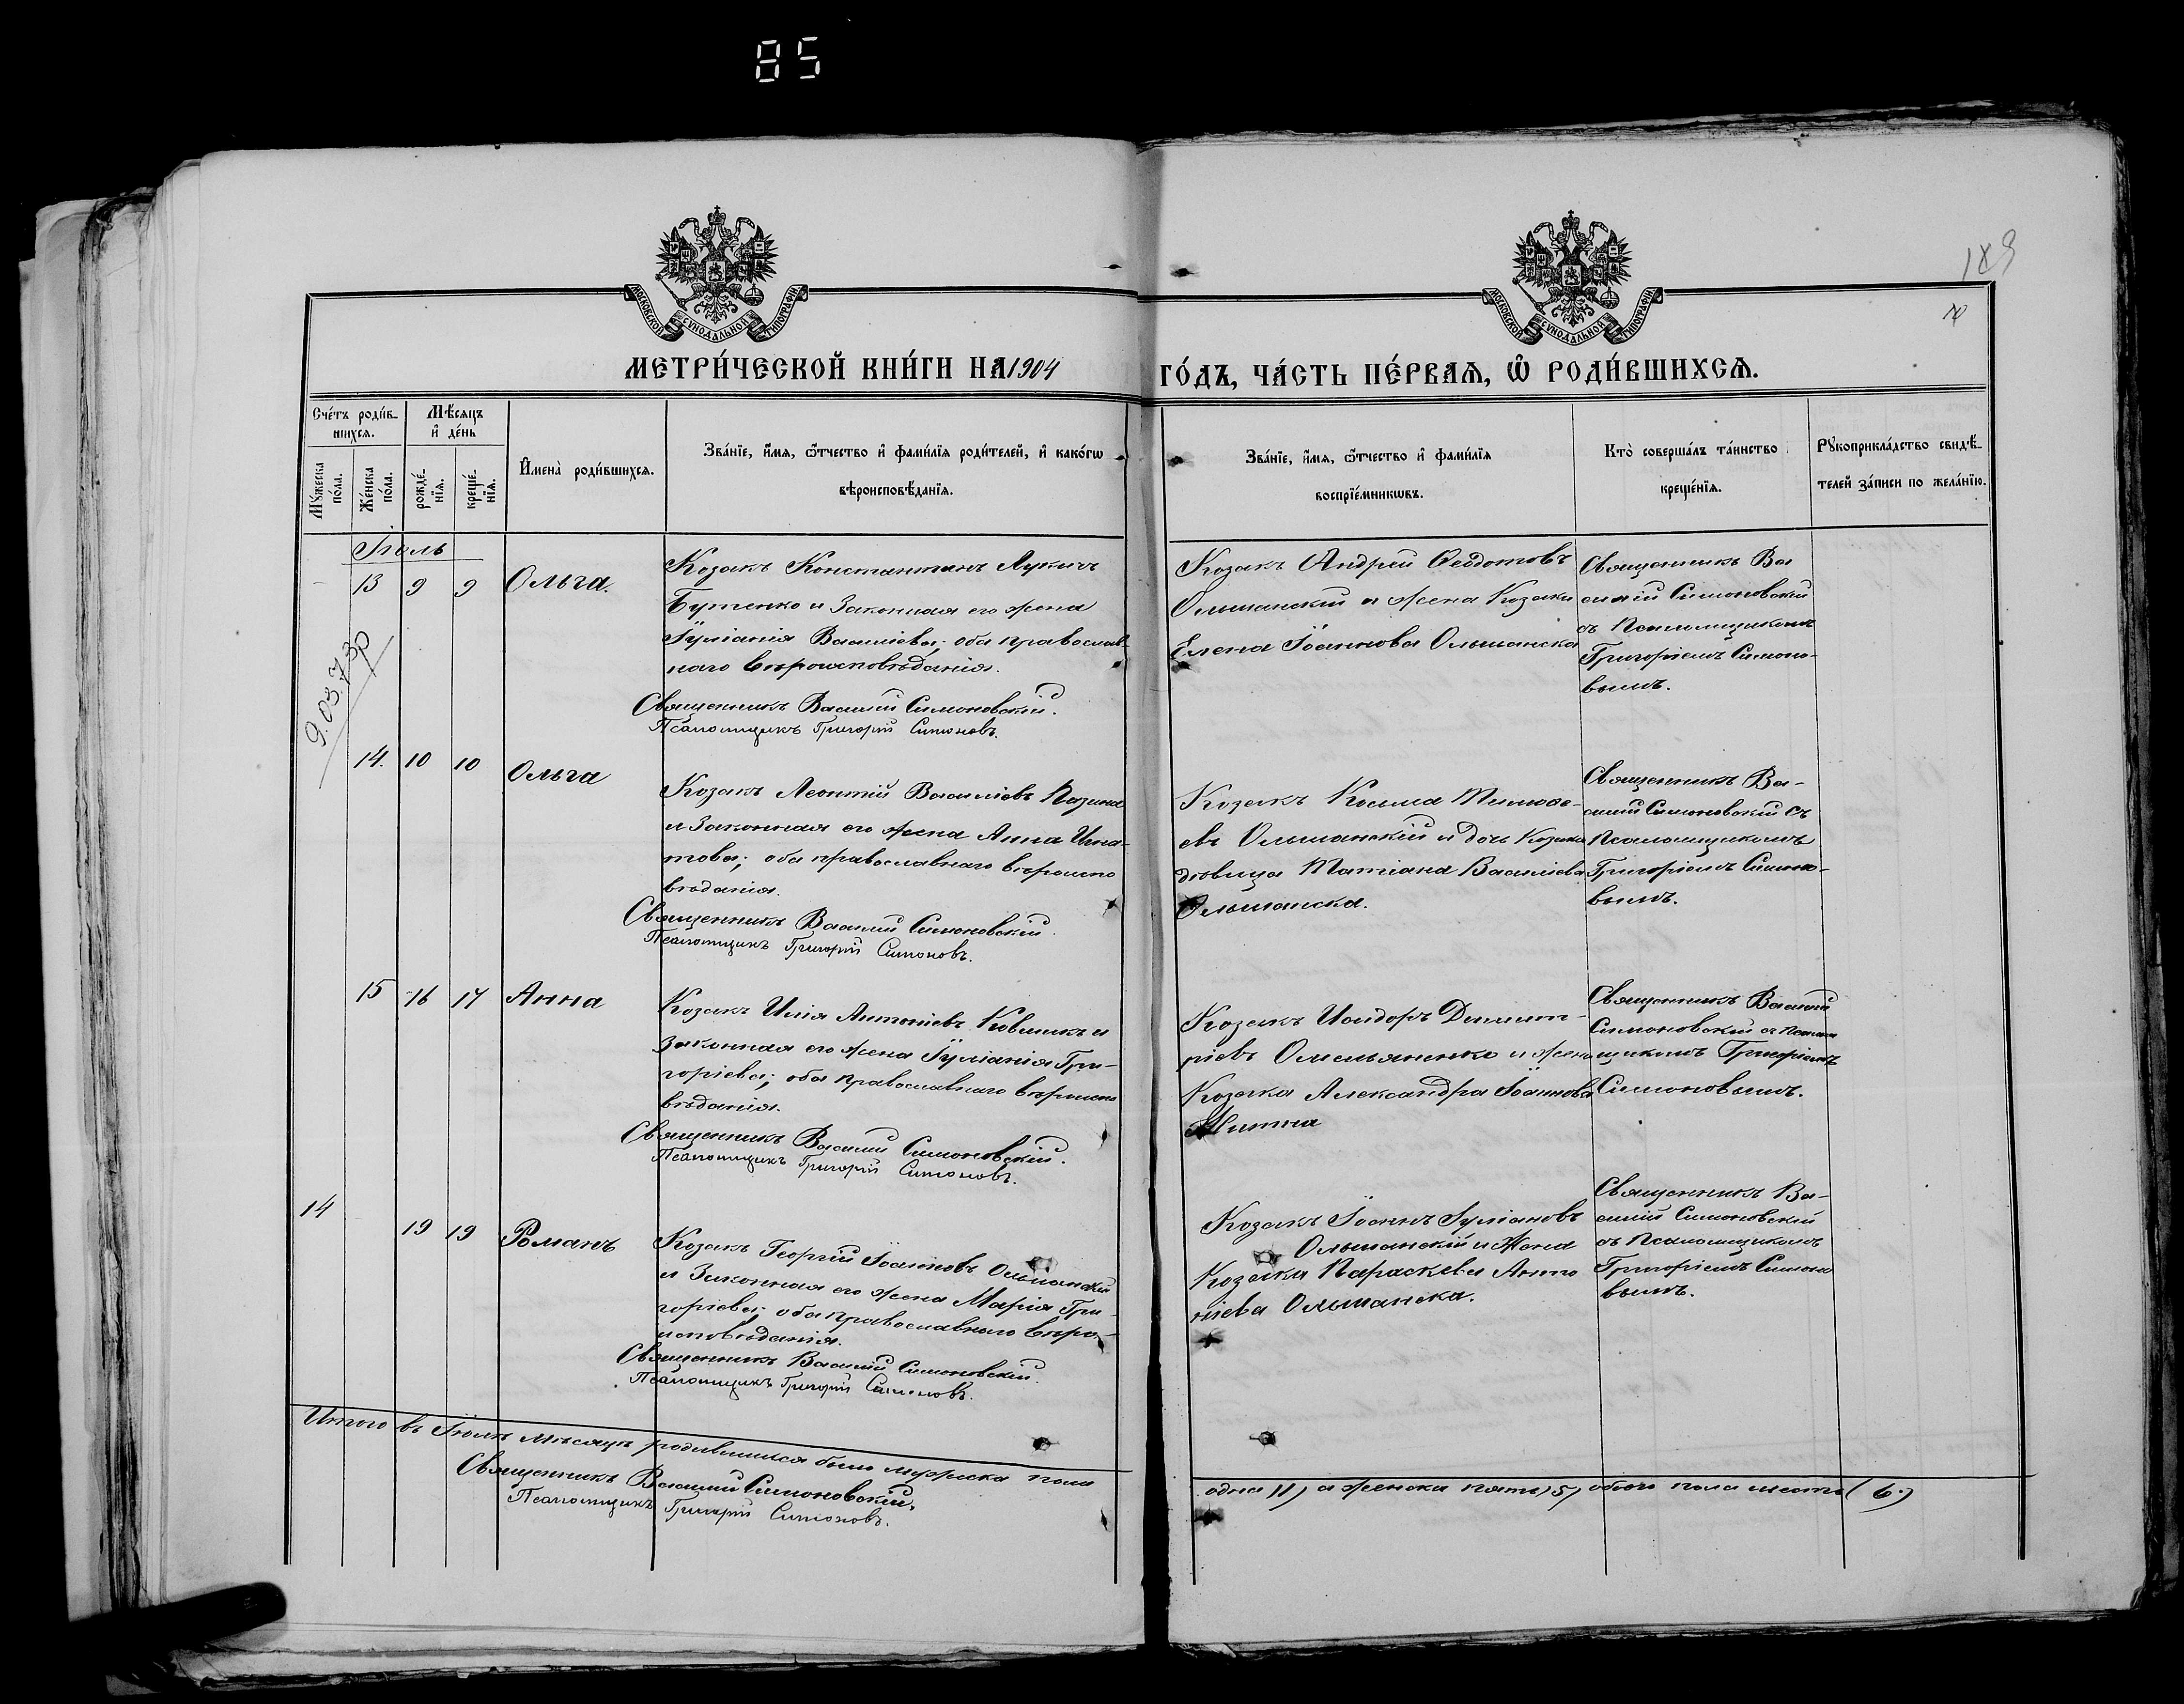 85
189
МОСКОВСКОЙ СѴНОДАЛЬНОЙ ТИПОГРАФІИ
МОСКОВСКОЙ СѴНОДАЛЬНОЙ ТИПОГРАФІИ
МЕТРИ́ЧЕСКОЙ КНИ́ГИ НА 1904 ГО́ДЪ, ЧА́СТЬ ПЕ́РВАѦ, Ѡ҆ РОДИ́ВШИХСѦ.
Сче́тъ роди́в-
шихсѧ.
Мꙋ́жеска по́ла.
Же́нска по́ла.
Мѣ́сяцъ
и҆ де́нь
рожде́-
нїѧ.
креще́-
нїѧ.
И҆мена̀ роди́вшихсѧ.
Зва́нїе, и҆́мѧ, ѻ҆́тчество и҆ фами́лїѧ роди́телей, и҆ како́гѡ
вѣроисповѣ́данїѧ.
Зва́нїе, и҆́мѧ, ѻ҆́тчество и҆ фами́лїѧ
воспрїе́мникѡвъ.
Кто̀ соверша́лъ та́инство
креще́нїѧ.
Рꙋкоприкла́дство свидѣ́-
телей за́писи по жела́нїю.
Іюль
13 9 9 Ольга.
Козакъ Константинъ Лукичъ
Бутенко и Законная его жена
Іуліанія Василіева; оба православ-
наго вѣроисповѣданія.
Священникъ Василій Симоновскій.
Псаломщикъ Григорій Симоновъ.
Козакъ Андрей Федотовъ
Ольшанскій и жена Козака
Елена Іоаннова Ольшанска
Священникъ Ва
силій Симоновскій
съ Псаломщикомъ
Григоріемъ Симоно-
вымъ.
9.03.73р
14. 10 10 Ольга
Козакъ Леонтій Василіевъ
и Законная его жена Анна Игна-
това; оба православнаго вѣроиспо
вѣданія.
Священникъ Василій Симоновскій.
Псаломщикъ Григорій Симоновъ.
Козакъ Косьма Тимофе-
евъ Ольшанскій и дочь Козака
дѣвица Татіана Василіева
Ольшанска.
Священникъ Ва-
силій Симоновскій съ
Псаломщикомъ
Григоріемъ Симоно-
вымъ.
15 16 17 Анна
Козакъ Илія Антоніевъ и
Законная его жена Іуліанія Гри-
горіева; оба православнаго вѣроиспо
вѣданія.
Священникъ Василій Симоновскій.
Псаломщикъ Григорій Симоновъ.
Козакъ Исидоръ Димит-
ріевъ Омельяненко и жена
Козака Александра Іоаннова
Священникъ Василій
Симоновскій съ Псалом
щикомъ Григоріемъ
Симоновымъ.
14 19 19 Романъ
Козакъ Георгій Іоанновъ Ольшанскій
и Законная его жена Марія Гри-
горіева; оба православнаго вѣро-
исповѣданія.
Священникъ Василій Симоновскій.
Псаломщикъ Григорій Симоновъ.
Козакъ Іоаннъ Іуліановъ
Ольшанскій и Жена
Козака Параскева Анто
ніева Ольшанска.
Священникъ Ва-
силій Симоновскій
съ Псаломщикомъ
Григоріемъ Симоно
вымъ.
Итого въ Іюлѣ мѣсяцѣ родившихся было мужеска пола
одна (1) а женска пять (5) обоего пола шесть (6.)
Священникъ Василій Симоновскій.
Псаломщикъ Григорій Симоновъ.